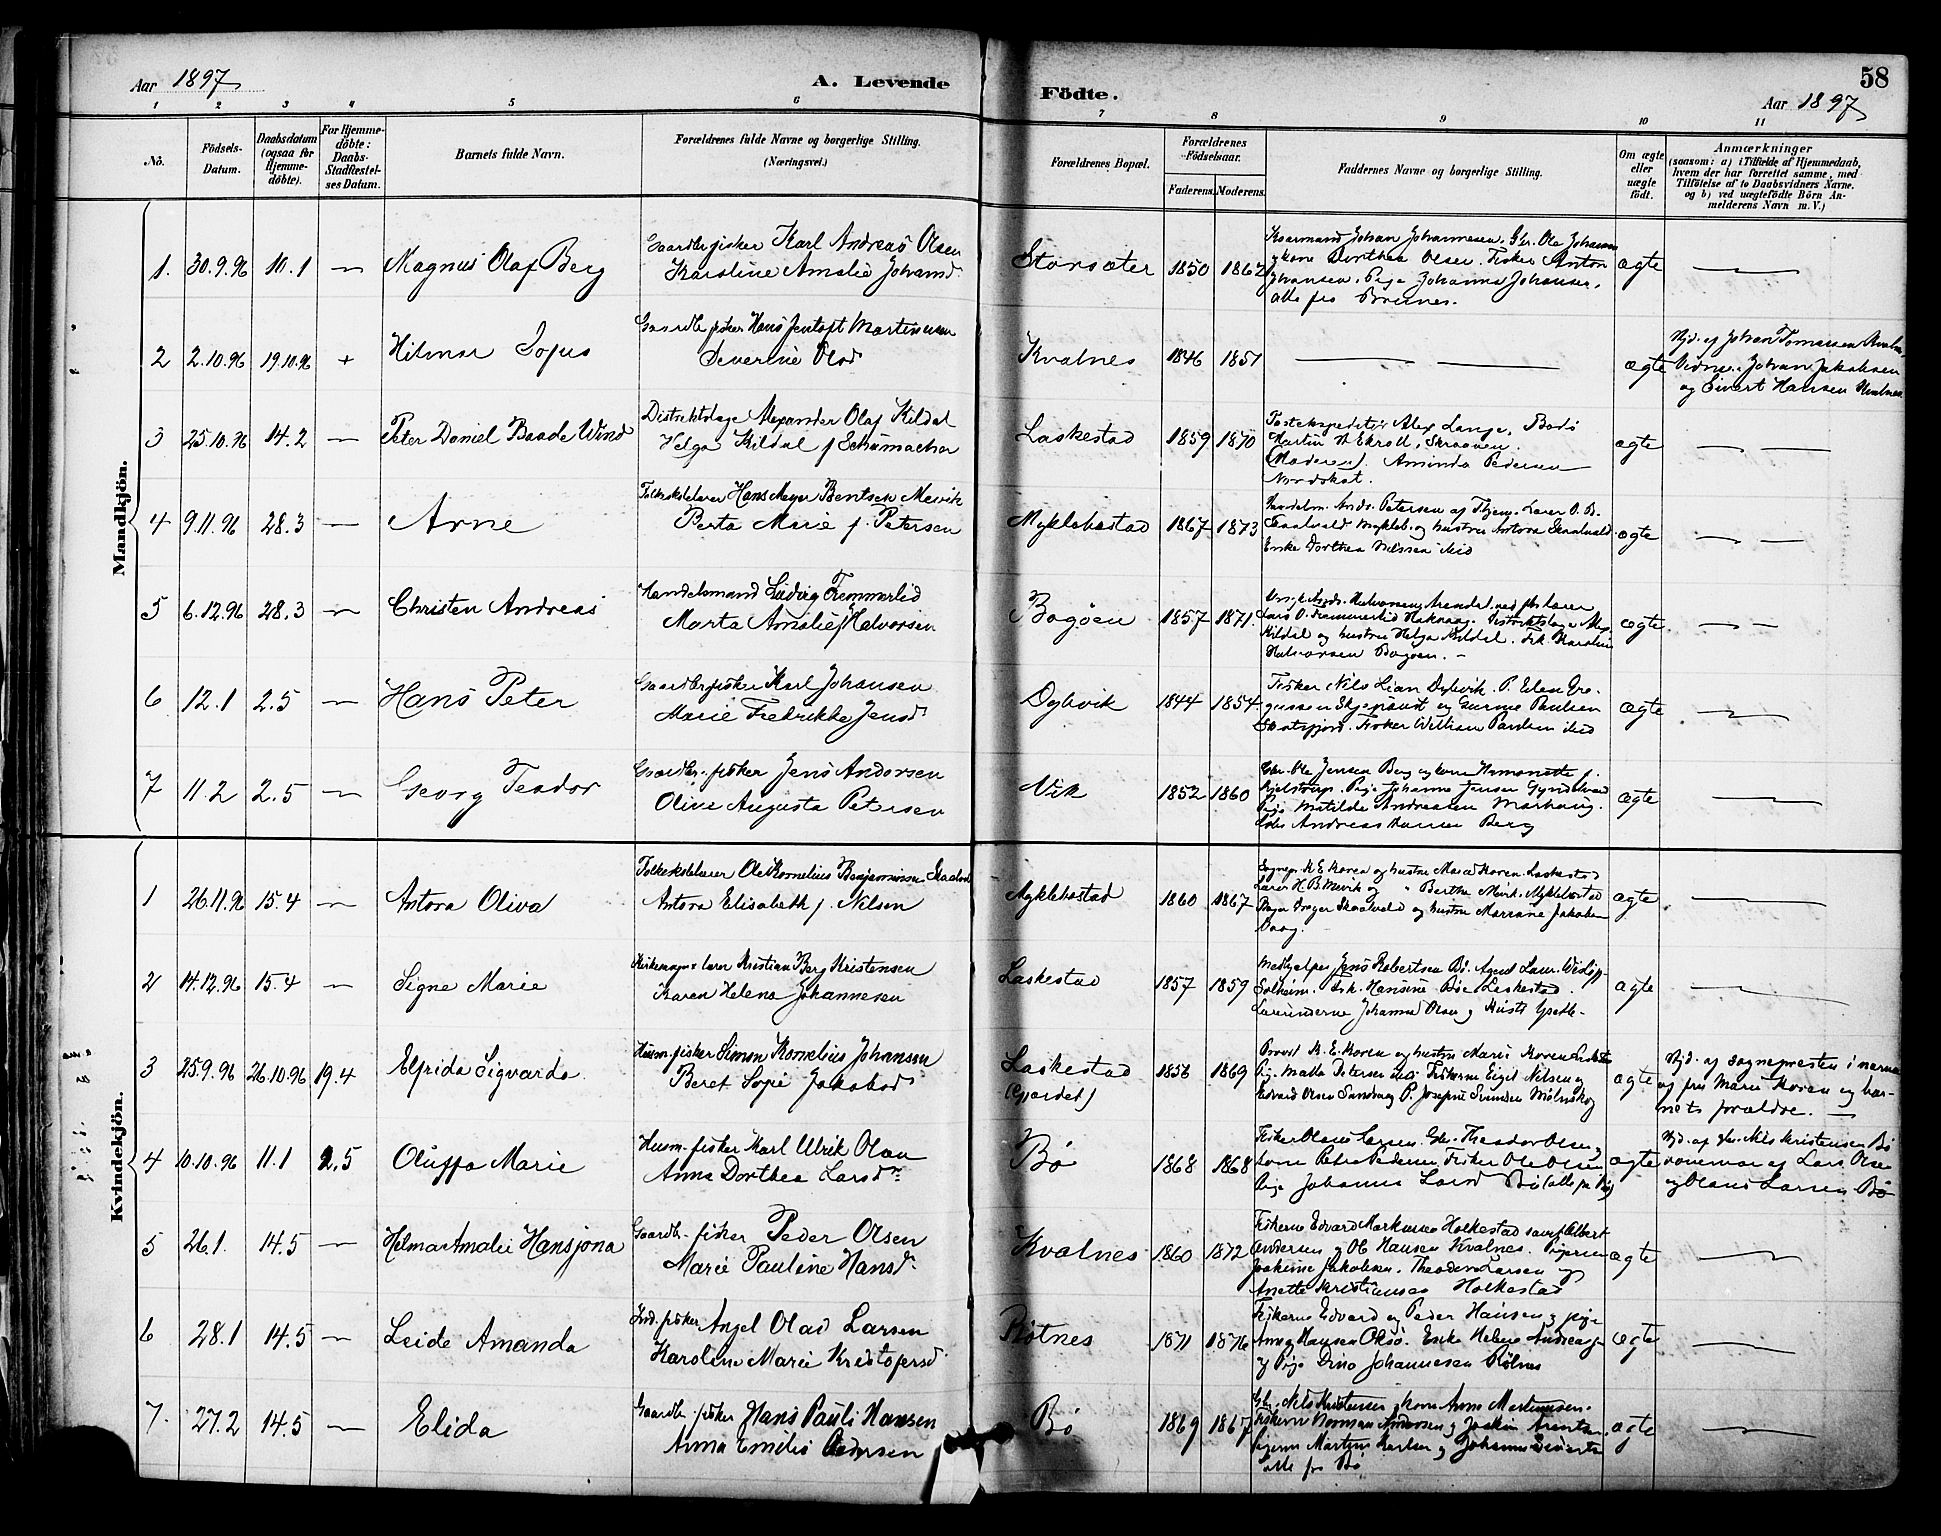 Aar 1897
A. Levende
Födte.
58
Aar 1897
1 2 3 4 5 6 7 8 9 10 11
No.
Födsels-Datum.
Daabsdatum (ogsaa for Hjemme-döbte).
For Hjemme-döbte: Daabs-Stadfæstel-ses Datum.
Barnets fulde Navn.
Forældrenes fulde Navne og borgerlige Stilling. (Næringsvei.)
Forældrenes Bopæl.
Forældrenes Födselsaar.
Faderens. Moderens.
Faddernes Navne og borgerlige Stilling.
Om ægte eller uægte födt.
Anmærkninger
(saasom: a) i Tilfælde af Hjemmedaab, hvem der har forrettet samme, med Tilföielse af to Daabsvidners Navne, og b) ved uægtefödte Börn An-melderens Navn m. V.)
Mandkjön.
1. 30.9.96 10.1 — Magnus Olaf Berg
Gaardbr fisker Karl Andreas Olsen
Karoline Amalie Johansd.
Storsæter 1850 1862
Johan Johannesen, Gbr. Ole Johansen
og kone Dorthea Olsen. Fisker Anton
Johansen. Pige Johanna Johansen,
alle fra
ægte —
2 2.10.96 19.10.96 + Hilmar Sofus
Gaardb. fisker Hans Jentoft Martinussen
Severine Olsd
Kvalnes 1846 1851 — — ægte
Hjd. af Johan Tomassen
Vidner: Johan Jakobsen
og Sivert Hansen Kvalnes
3 25.10.96 14.2 — Peter Daniel Baade Wind
Distriktslæge Alexander Olaf Kildal
Helga Kildal f Schumacher
Laskestad 1859 1870
Postekspeditör Alex Lange, Bodö
Martin Ekroll, Skraaven
(Moderen). Aminda Pedersen
Nordskot.
ægte — —
4 9.11.96 28.3 — Arne
Folkeskolelærer Hans Meyer Bentsen Mevik
Berta Marie f. Petersen
Myklebostad 1867 1873
Handelsm. Andr. Petersen af Lærer O. B.
Skaalvald Mykleb. og hustru Antora Skaalvald
Enke Dorthea Nilssen ibid
ægte — —
5 6.12.96 28.3 — Christen Andreas
Handelsmand Ludvig Tremmerlid
Marta Amalie f Halvorsen
Bogöen 1857 1871
Andr. Halvorsen Arendal ved
Lars O. Distriktslæge Alex
Kildal og hustru Helga Kildal. Frk. Karoline
Halvorsen Bogöen. —
ægte — —
6 12.1 2.5 — Hans Peter
Gaardbr fisker Karl Johansen
Marie Fredrikke Jensd
Dybvik 1844 1854
Fisker Nils Lian Dybvik. P. Elen
og Gurine Paulsen
Fisker William Paulsen ibid
ægte —
7 11.2 2.5 — Georg Teador
Gaardbr. fisker Jens Andersen
Olive Augusta Petersen
Vik 1852 1860
Gbr. Ole Jensen Berg og kone
Pige Johanna Jensen
Pige Matilde Andreasen Marhaug.
Andreas Hansen Berg
ægte —
Kvindekjön.
1 26.11.96 15.4 — Antora Oliva
Folkeskolelærer Ole Kornelius Benjaminsen
Antora Elisabeth f. Nilsen
Myklebostad 1860 1867
Sognepr. K. E. Koren og hustru Marie Koren Laskestad
Lærer H. B. Mevik og " Berthe Mevik. Myklebostad
Skaalvald og hustru Marrane Jakobsen
ægte —
2 14.12.96 15.4 — Signe Marie
Kirkesanger & lærer Kristian Berg Kristensen
Karen Helena Johannesen
Laskestad 1857 1859
Medhjelper Jens Robertsen Bö. Agent
Solheim. Frk. Hansine Böe Laskestad.
Johanna Olsen
ægte —
3 25.9.96 26.10.96 19.4 Elfrida Sigvarda
Husm. fisker Simon Kornelius Johansen
Beret Sofie Jakobsd
Laskestad
(Gjærdet) 1856 1869
Provst K. E. Koren og hustru Marie Koren
Pige Malla Petersen ibid Fiskerne Eigil Nilsen og
Edvard Olsen P. Josefine Svendsen
ægte
Hjd. af sognepresten i nærvær
af fru Marie Koren og bar-
nets forældre. —
4 10.10.96 11.1 2.5 Oluffa Marie
Husm. fisker Karl Ulrik Olsen
Anna Dorthea Larsd.
Bö 1868 1868
Fisker Olaus Larsen. Gbr. Theodor Olsen og
kone Petra Pedersen Fisker Ole Olsen
Pige Johanna Larsd Bö (alle fra Bö)
ægte
Hjd. af Gbr. Nils Kristensen Bö
i nærvær af Lars Olsen
og Olaus Larsen Bö
5 26.1. 14.5 — Helma Amalie Hansjona
Gaardb. fisker Peder Olsen
Marie Pauline Hansd.
Kvalnes 1860 1872
Fiskerne Edvard Markussen Holkestad samt Albert
Andersen og Ole Hansen Kvalnes. Pigerne
Joakime Jakobsen. Theodora Larsen og
Anette Kristiansen Holkestad
ægte —
6 28.1 14.5 — Leide Amanda
Ind. fisker Angel Olaus Larsen
Karoline Marie Kristofersd
Rötnes 1871 1876
Fiskerne Edvard og Peder Hansen og pige
Anna Hansen Oksö. Enke Helene Andreasen
og Pige Dina Johannesen Rötnes
ægte —
7. 27.2 14.5 — Elida
Gaardb. fisker Hans Pauli Hansen
Anna Emilie Pedersen
Bö 1869 1867
Gbr. Nils Kristensen og kone Anne Martinussen.
Fiskerne Norman Andersen og Joakim Arentsen.
Pigerne Martine Karlsen og Johanna Sivertsen
alle fra Bö
ægte —